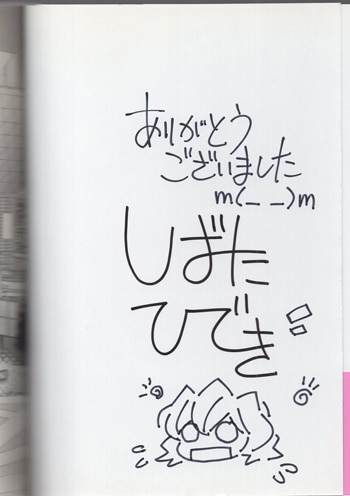 ありがとう
ございました
m(_ _)m
しばた
ひでき